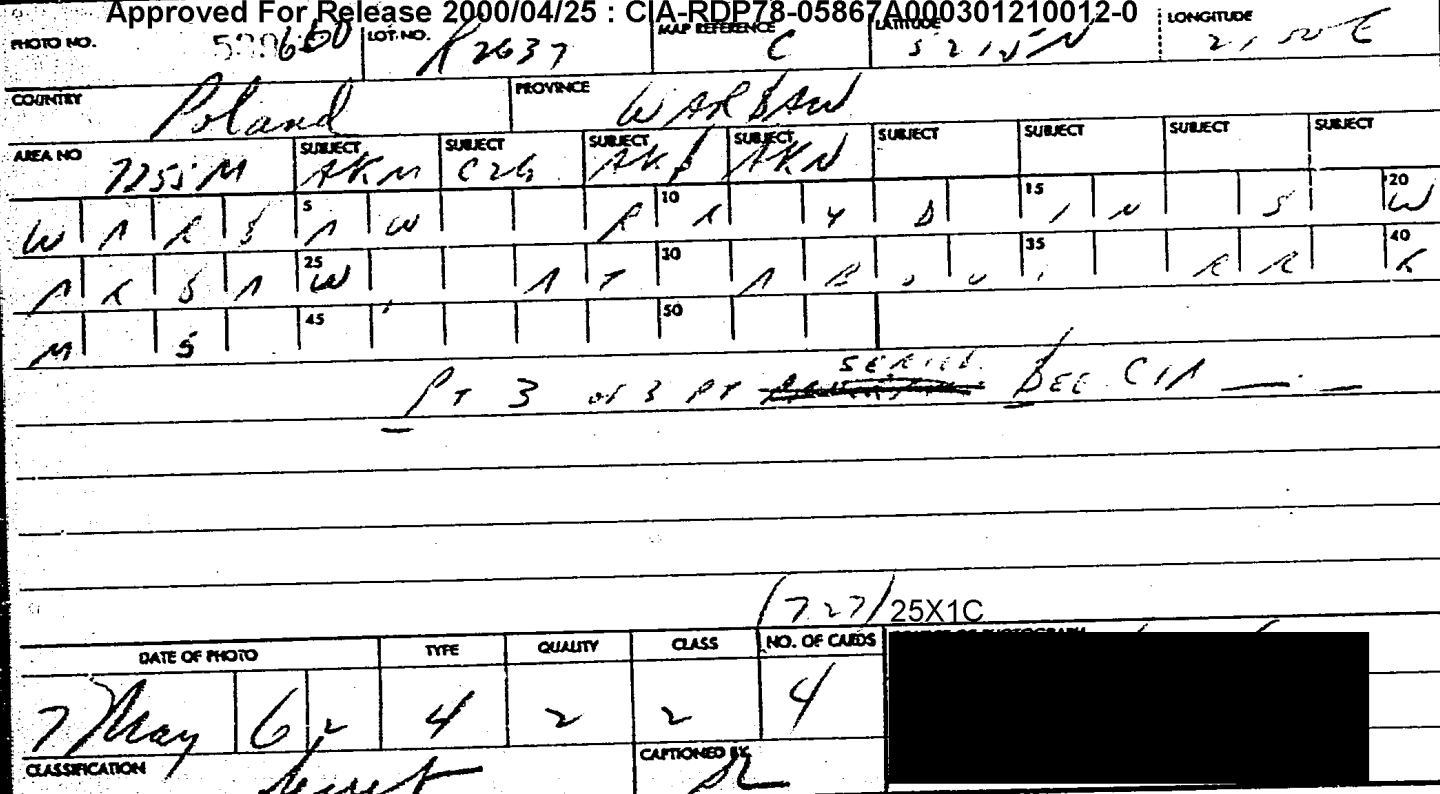 Approved For Release 2000/04/25 : CIA-RDP78-05867A000301210012-0
PHOTO NO. LOT NO. R2637 MAP REFERENCE C LATITUDE 5215N LONGITUDE 2150E
COUNTRY Poland PROVINCE WARSAW
AREA NO 7255M SUBJECT AKM SUBJECT C26 SUBJECT SUBJECT AKN SUBJECT SUBJECT SUBJECT SUBJECT
WARS 5 AW 10 YD 15 IN S 20 W
ARSA 25 W, AT 30 ABOUT 35 RR 40 K
M S 45 50
PT 3 of 3 PT SERIES. SEE CIA
(727) 25X1C
DATE OF PHOTO TYPE QUALITY CLASS NO. OF CARDS
7 May 62 4 2 2 4
CLASSIFICATION Secret CAPTIONED BY